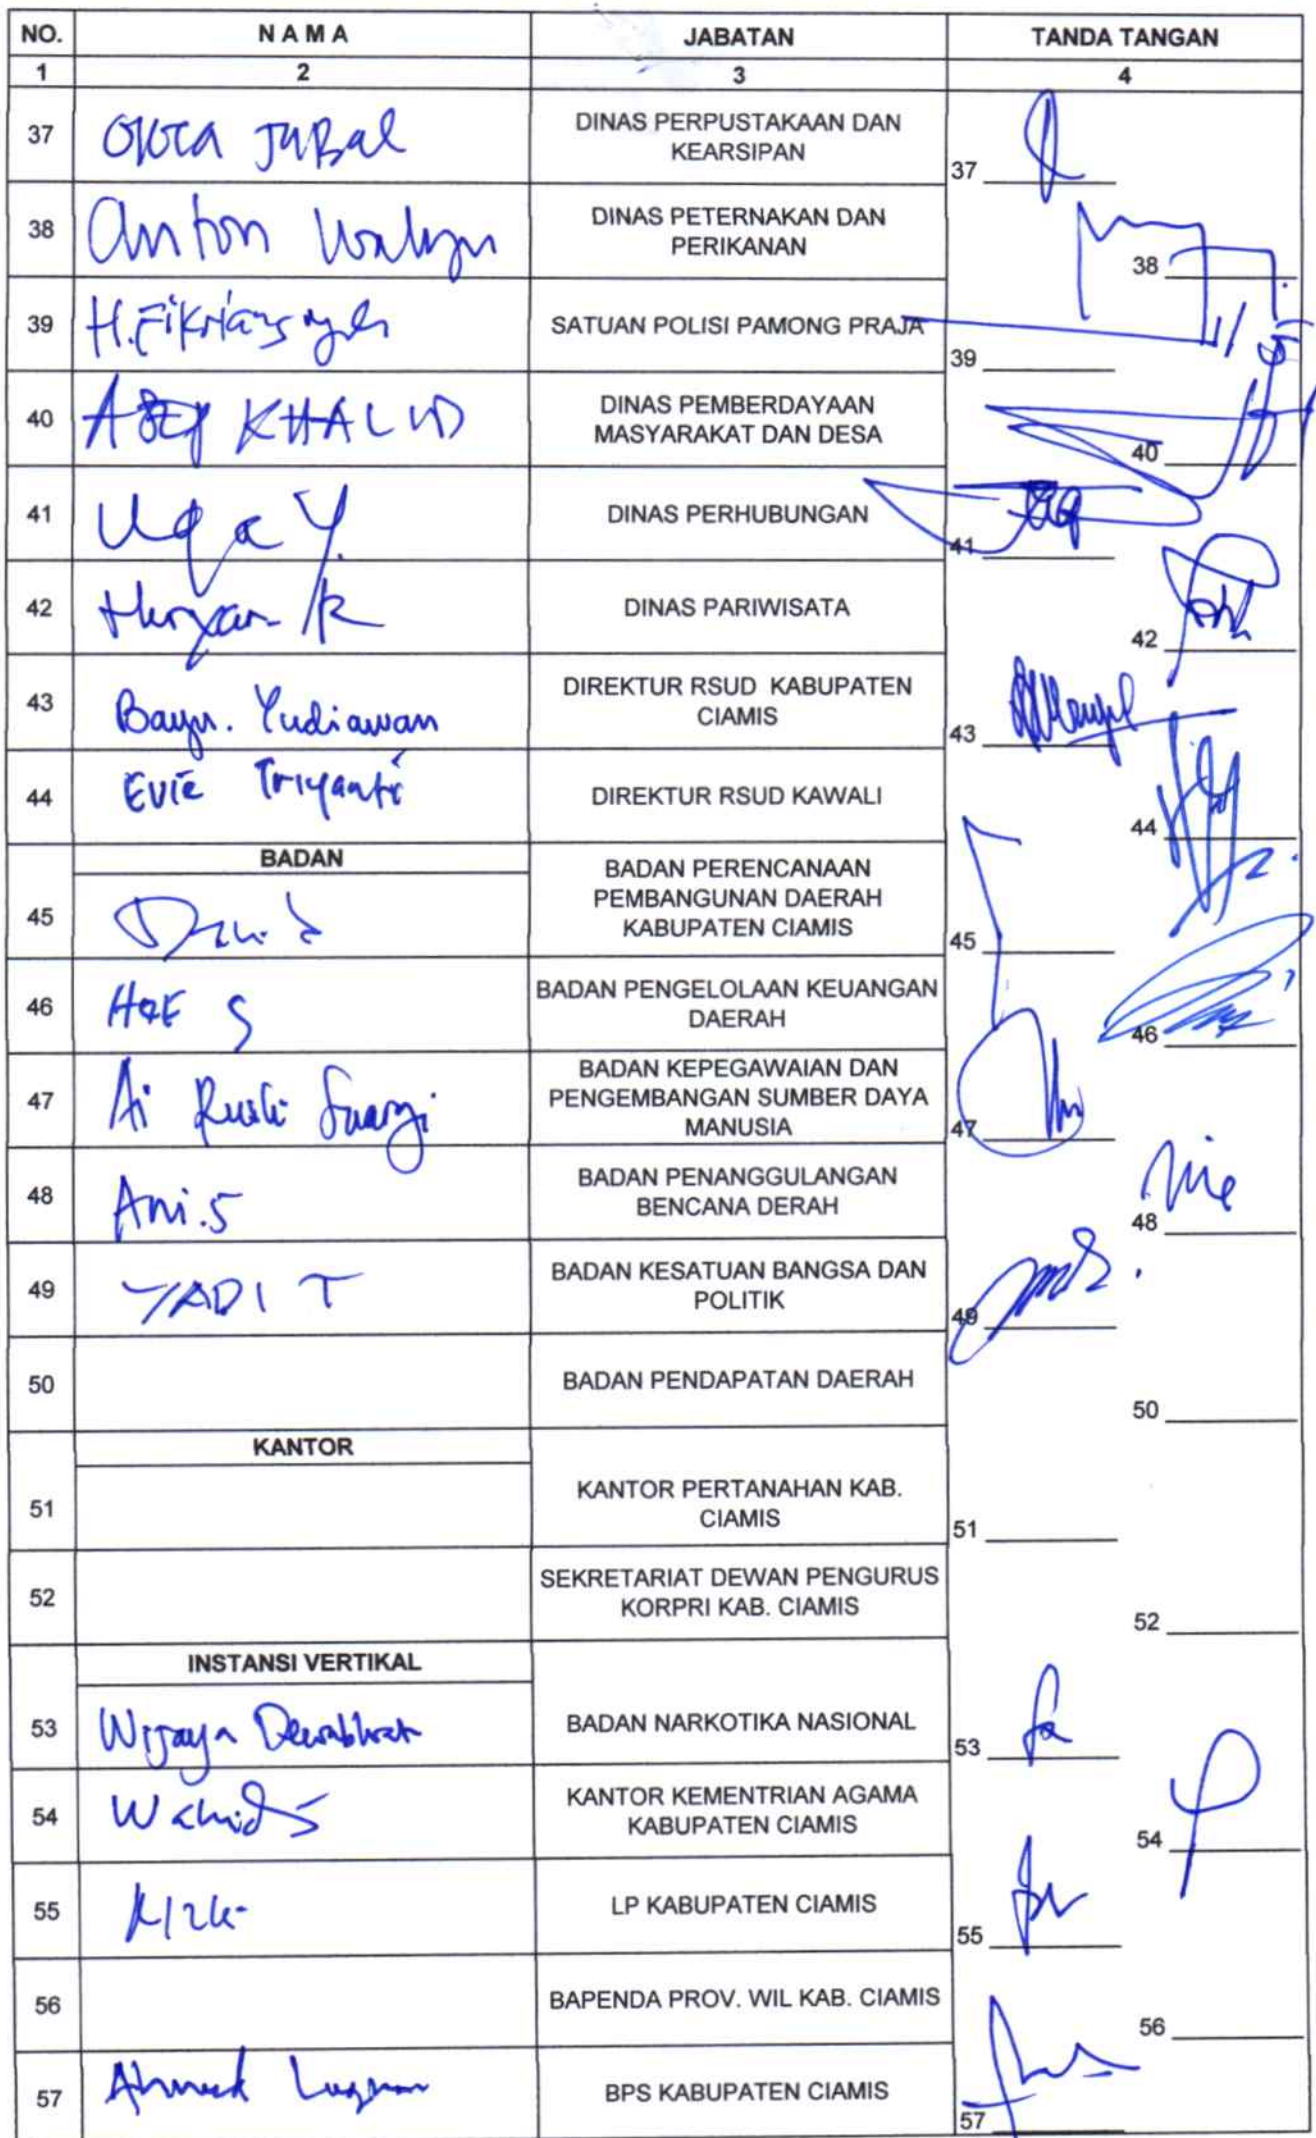 NO. NAMA JABATAN TANDA TANGAN
1 2 3 4
37 OKTA JUBAL DINAS PERPUSTAKAAN DAN
KEARSIPAN
37
38 Anton Wahyu DINAS PETERNAKAN DAN
PERIKANAN
38
39 H. Fikriansyah SATUAN POLISI PAMONG PRAJA
39
40 KHALID DINAS PEMBERDAYAAN
MASYARAKAT DAN DESA
40
41 Uga Y. DINAS PERHUBUNGAN
41
42 DINAS PARIWISATA
42
43 Bayu. Yudiawan DIREKTUR RSUD KABUPATEN
CIAMIS
43
44 Evie Triyanti DIREKTUR RSUD KAWALI
44
BADAN
45 BADAN PERENCANAAN
PEMBANGUNAN DAERAH
KABUPATEN CIAMIS
45
46 S BADAN PENGELOLAAN KEUANGAN
DAERAH
46
47 Ai Rusli BADAN KEPEGAWAIAN DAN
PENGEMBANGAN SUMBER DAYA
MANUSIA
47
48 Ani.S BADAN PENANGGULANGAN
BENCANA DERAH
48
49 YADI T BADAN KESATUAN BANGSA DAN
POLITIK
49
50 BADAN PENDAPATAN DAERAH
50
KANTOR
51 KANTOR PERTANAHAN KAB.
CIAMIS
51
52 SEKRETARIAT DEWAN PENGURUS
KORPRI KAB. CIAMIS
52
INSTANSI VERTIKAL
53 Wijaya BADAN NARKOTIKA NASIONAL
53
54 Wahid S KANTOR KEMENTRIAN AGAMA
KABUPATEN CIAMIS
54
55 LP KABUPATEN CIAMIS
55
56 BAPENDA PROV. WIL KAB. CIAMIS
56
57 Ahmad Luqman BPS KABUPATEN CIAMIS
57